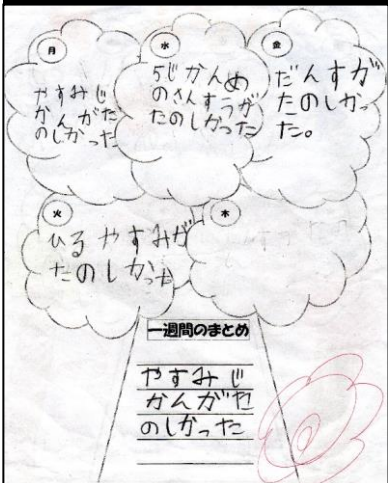 月
やすみじ
かんがた
のしかった
水
5じかんめ
のさんすうが
たのしかった
金
だんすが
たのしかっ
た。
火
ひるやすみが
たのしかった
木
一週間のまとめ
やすみじ
かんがた
のしかった